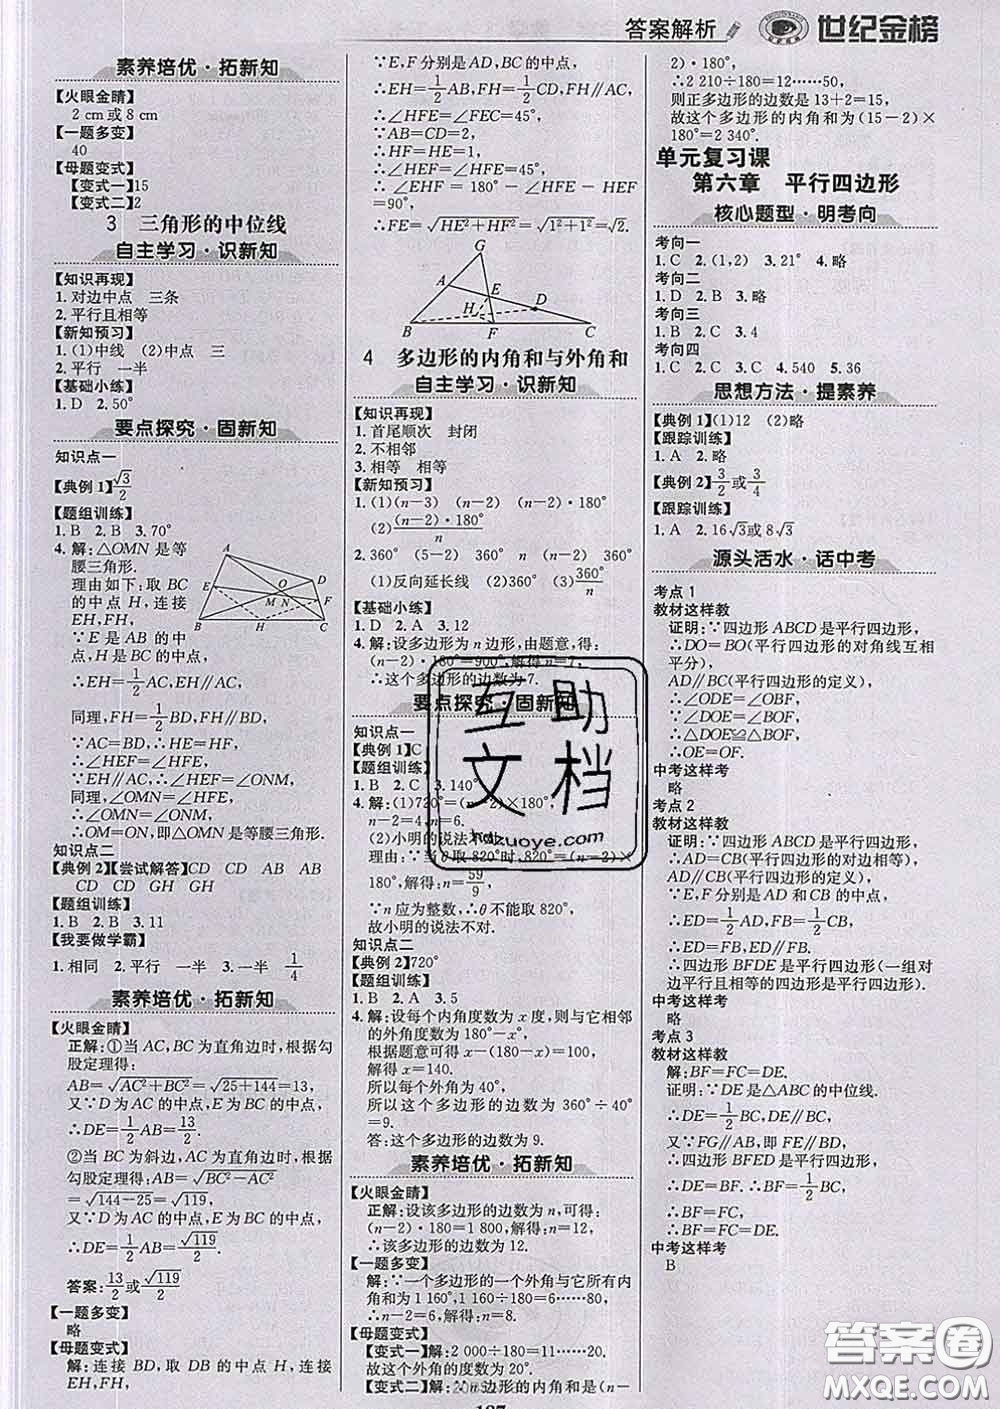 答案解析
世纪金榜
素养培优·拓新知
【火眼金睛】
2 cm或8 cm
【一题多变】
40
【母题变式】
【变式一】15
【变式二】2
3 三角形的中位线
自主学习·识新知
【知识再现】
1.对边中点 三条
2.平行且相等
【新知预习】
1.(1)中线 (2)中点 三
2.平行 一半
【基础小练】
1.D 2.50°
要点探究·固新知
知识点一
【典例1】√3/2
【题组训练】
1.B 2.B 3.70°
4.解:△OMN是等
腰三角形.
理由如下:取BC
的中点H,连接
EH,FH,
∵E是AB的中
点,
∴EH=1/2AC,EH∥AC,
同理,FH=1/2BD,FH∥BD,
∵AC=BD,∴HE=HF,
∴∠HEF=∠HFE,
∵EH∥AC,∴∠HEF=∠ONM,
同理,∠OMN=∠HFE,
∴∠OMN=∠ONM,
∴OM=ON,即△OMN是等腰三角形.
知识点二
【典例2】【尝试解答】CD CD AB AB
CD CD GH GH
【题组训练】
1.B 2.B 3.11
【我要做学霸】
1.相同 2.平行 一半 3.一半 1/4
素养培优·拓新知
【火眼金睛】
正解:①当AC,BC为直角边时,根据勾
股定理得:
AB=√AC²+BC²=√25+144=13,
又∵D为AC的中点,E为BC的中点,
∴DE=1/2AB=13/2.
②当BC为斜边,AC为直角边时,根据
勾股定理得:AB=√BC²-AC²
=√144-25=√119,
又∵D为AC的中点,E为BC的中点,
∴DE=1/2AB=√119/2.
答案:13/2或√119/2
【一题多变】
略
【母题变式】
解:连接BD,取DB的中点H,连接
EH,FH,
∵E,F分别是AD,BC的中点,
∴EH=1/2AB,FH=1/2CD,FH∥AC,
∴∠HFE=∠FEC=45°,
∵AB=CD=2,
∴HF=HE=1,
∴∠HEF=∠HFE=45°,
∴∠EHF=180°-∠HFE-∠HEF
=90°,
∴FE=√HE²+HF²=√1²+1²=√2.
4 多边形的内角和与外角和
自主学习·识新知
【知识再现】
1.首尾顺次 封闭
2.不相邻
3.相等 相等
【新知预习】
1.(1)(n-3) (n-2) (n-2)·180°
(2)(n-2)·180°/n
2.360° (5-2) 360° n (n-2) 360°
(1)反向延长线 (2)360° (3)360°/n
【基础小练】
1.D 2.A 3.12
4.解:设多边形为n边形,由题意,得:
(n-2)·180°=900°,解得n=7,
∴这个多边形的边数为7.
要点探究·固新知
知识点一
【典例1】C
【题组训练】
1.B 2.C 3.140°
4.解:(1)720°=(n-2)×180°,
n-2=4,n=6.
(2)小明的说法不对,
理由:∵当θ取820°时,820°=(n-2)×
180°,解得:n=59/9,
∵n应为整数,∴θ不能取820°,
故小明的说法不对.
知识点二
【典例2】720°
【题组训练】
1.B 2.A 3.5
4.解:设每个内角度数为x度,则与它相邻
的外角度数为180°-x°,
根据题意可得x-(180-x)=100,
解得x=140.
所以每个外角为40°,
所以这个多边形的边数为360°÷40°
=9.
答:这个多边形的边数为9.
素养培优·拓新知
【火眼金睛】
正解:设该多边形的边数为n,可得:
(n-2)·180=1 800,解得:n=12,
∴该多边形的边数为12.
【一题多变】
解:∵一个多边形的一个外角与它所有内
角和为1 160°,1 160÷180=6……80,
∴n-2=6,解得:n=8.
【母题变式】
【变式一】解:2 000÷180=11……20.
故这个外角的度数为20°.
【变式二】解:∵n边形的内角和是(n-
2)·180°,
∴2 210÷180=12……50,
则正多边形的边数是13+2=15,
故这个多边形的内角和为(15-2)×
180°=2 340°.
单元复习课
第六章 平行四边形
核心题型·明考向
考向一
1.C 2.(1,2) 3.21° 4.略
考向二
1.D 2.B 3.略
考向三
1.B 2.C 3.4
考向四
1.C 2.C 3.C 4.540 5.36
思想方法·提素养
【典例1】(1)12 (2)略
【跟踪训练】
1.A 2.略
【典例2】3/2或3/4
【跟踪训练】
1.A 2.16√3或8√3
源头活水·话中考
考点1
教材这样教
证明:∵四边形ABCD是平行四边形,
∴DO=BO(平行四边形的对角线互相
平分),
AD∥BC(平行四边形的定义),
∴∠ODE=∠OBF,
∵∠DOE=∠BOF,
∴△DOE≌△BOF,
∴OE=OF.
中考这样考
略
考点2
教材这样教
证明:∵四边形ABCD是平行四边形,
∴AD=CB(平行四边形的对边相等),
AD∥CB(平行四边形的定义),
∵E,F分别是AD和CB的中点,
∴ED=1/2AD,FB=1/2CB,
∴ED=FB,ED∥FB,
∴四边形BFDE是平行四边形(一组对
边平行且相等的四边形是平行四边形).
中考这样考
略
考点3
教材这样教
解:BF=FC=DE.
证明:∵DE是△ABC的中位线,
∴DE=1/2BC,DE∥BC,
又∵FG∥AB,即FE∥BD,
∴四边形BFED是平行四边形,
∴DE=BF=1/2BC,
∴BF=FC,
∴BF=FC=DE.
中考这样考
B
互助文档
hdzuoye.com
答案圈
MXQE.COM